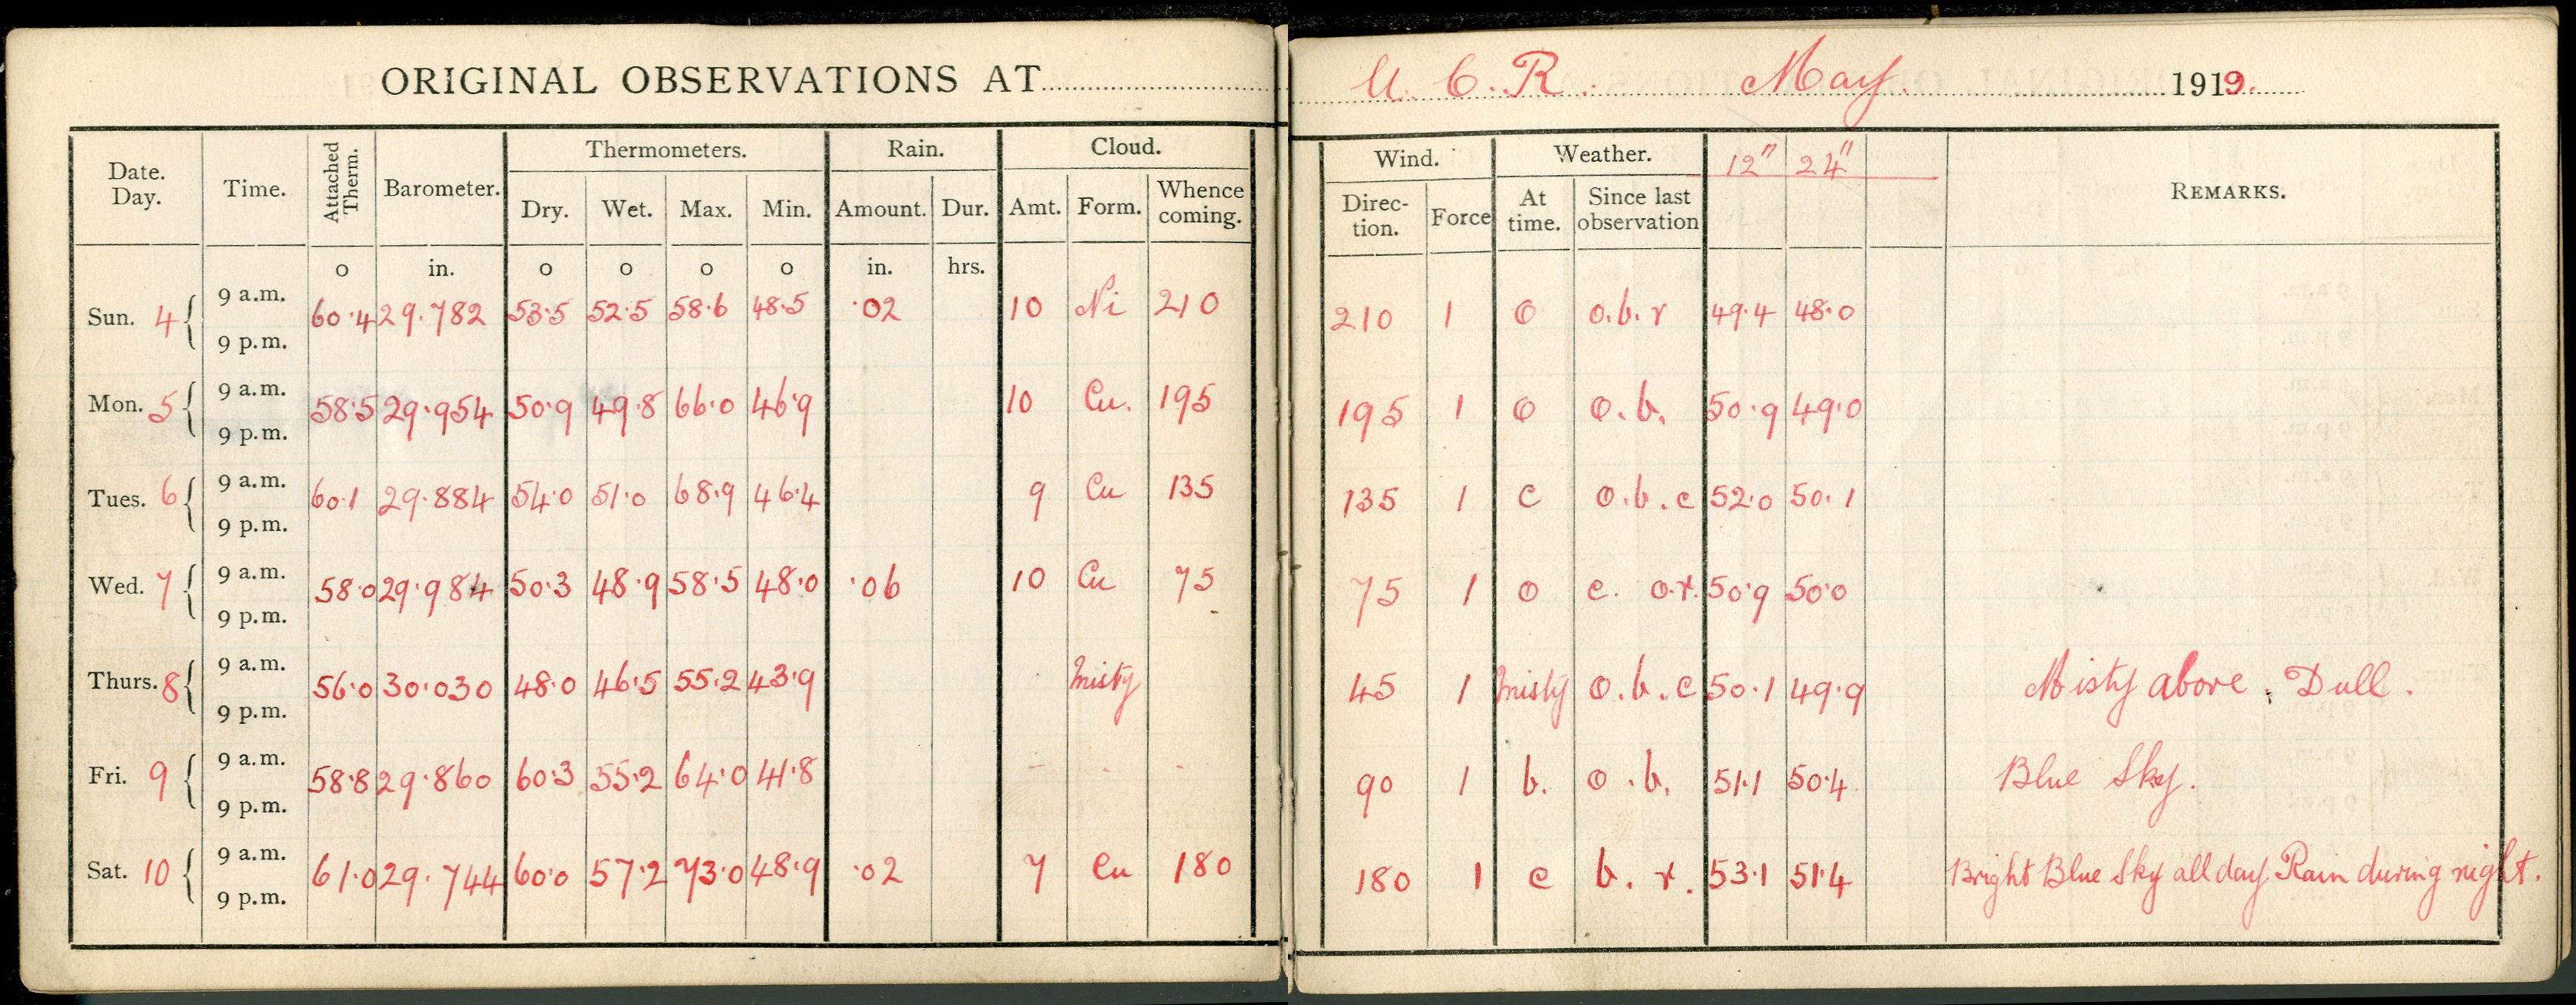 ORIGINAL OBSERVATIONS AT U. C. R. May. 1919.
Date. Day. Time. Attached Therm. Barometer. Thermometers. Rain. Cloud. Wind. Weather. 12" 24" REMARKS.
Dry. Wet. Max. Min. Amount. Dur. Amt. Form. Whence coming. Direc-tion. Force At time. Since last observation
o in. o o o o in. hrs.
Sun. 4 { 9 a.m. 60.4 29.782 53.5 52.5 58.6 48.5 .02 10 Ni 210 210 1 o o.b.r 49.4 48.0
9 p.m.
Mon. 5 { 9 a.m. 58.5 29.954 50.9 49.8 66.0 46.9 10 Cu. 195 195 1 o o.b. 50.9 49.0
9 p.m.
Tues. 6 { 9 a.m. 60.1 29.884 54.0 51.0 68.9 46.4 9 Cu 135 135 1 c o.b.c 52.0 50.1
9 p.m.
Wed. 7 { 9 a.m. 58.0 29.984 50.3 48.9 58.5 48.0 .06 10 Cu 75 75 1 o c. o.r. 50.9 50.0
9 p.m.
Thurs. 8 { 9 a.m. 56.0 30.030 48.0 46.5 55.2 43.9 Misty 45 1 Misty o.b.c 50.1 49.9 Misty above. Dull.
9 p.m.
Fri. 9 { 9 a.m. 58.8 29.860 60.3 55.2 64.0 41.8 - - - 90 1 b. o.b. 51.1 50.4 Blue Sky.
9 p.m.
Sat. 10 { 9 a.m. 61.0 29.744 60.0 57.2 73.0 48.9 .02 7 Cu 180 180 1 c b. r. 53.1 51.4 Bright Blue Sky all day. Rain during night.
9 p.m.